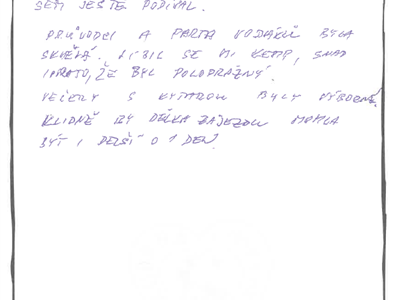 SEM JEŠTĚ PODÍVAL.
PRŮVODCI A PARTA VODÁKŮ BYLA
SKVĚLÁ. LÍBIL SE MI KEMP, SNAD
I PROTO, ŽE BYL POLOPRÁZNÝ.
VEČERY S KYTAROU BYLY VÝBORNÉ.
KLIDNĚ BY DÉLKA ZÁJEZDU MOHLA
BÝT I DELŠÍ O 1 DEN.